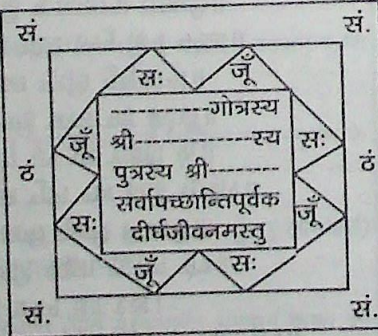 सं. सं.
सः जूँ
----------गोत्रस्य
जूँ श्री----------स्य सः
ठं पुत्रस्य श्री------- ठं
सर्वापच्छान्तिपूर्वक
सः दीर्घजीवनमस्तु जूँ
जूँ सः
सं. सं.